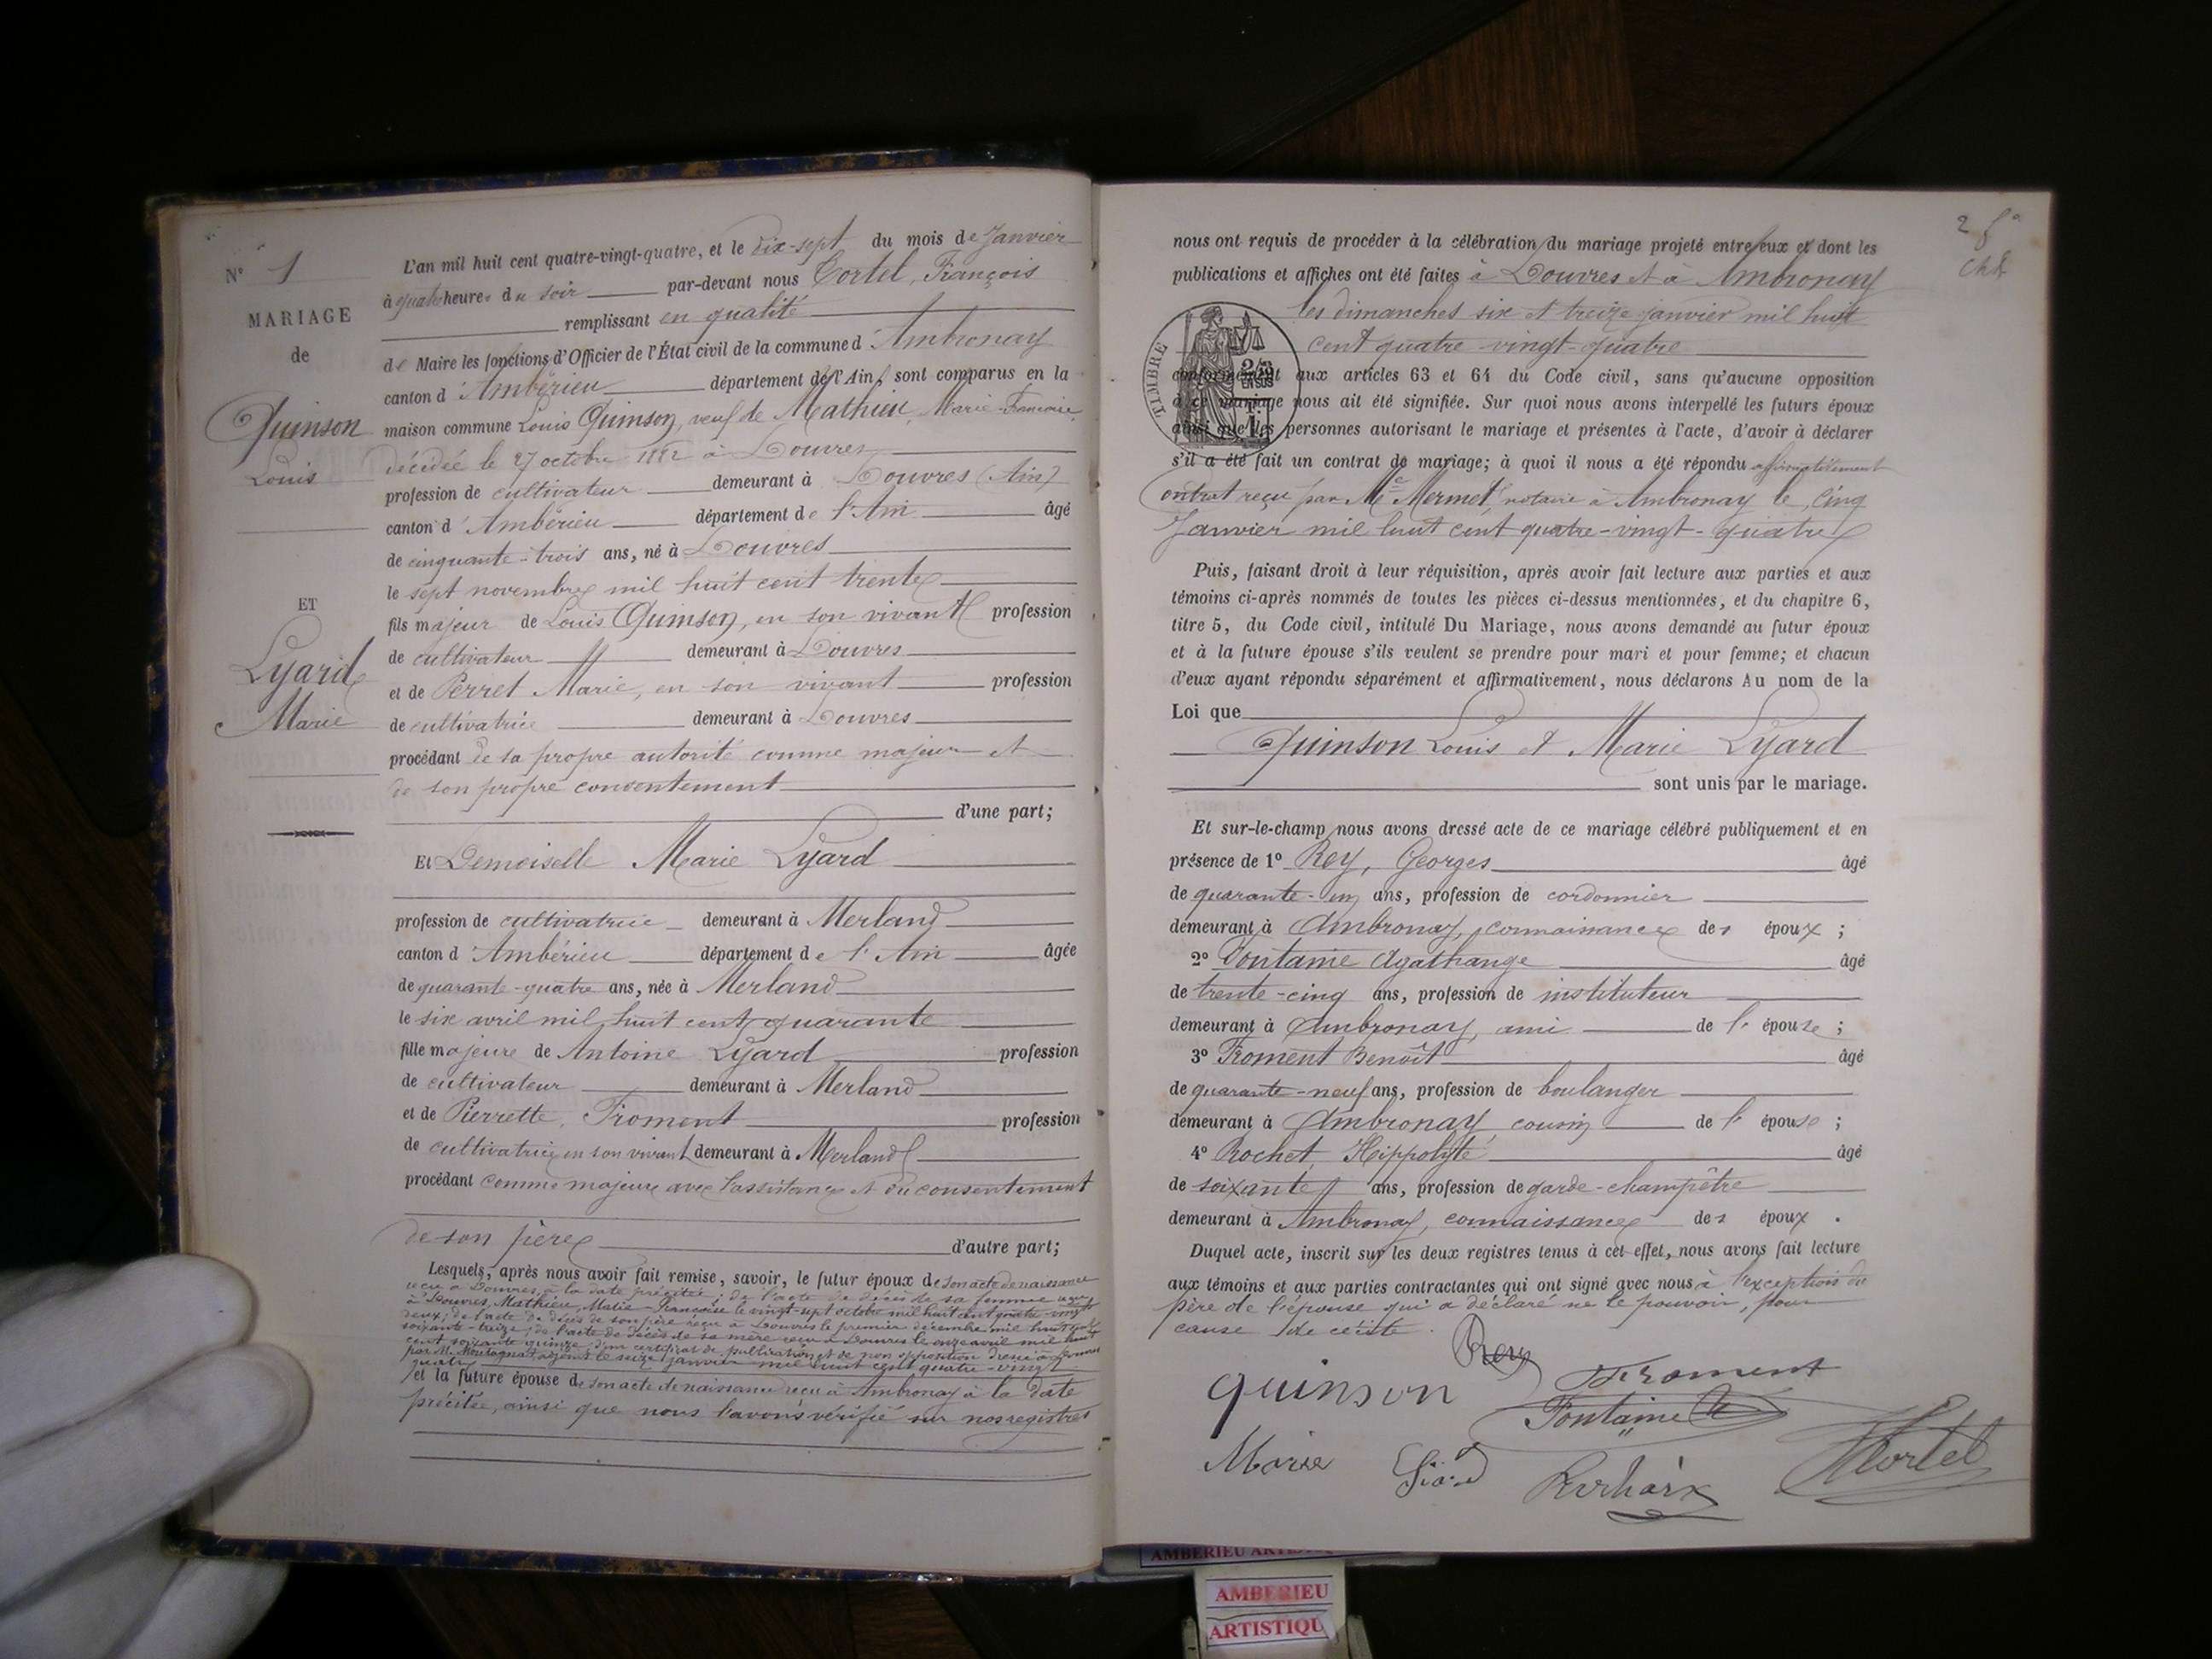 N° 1
MARIAGE
de
Quinson
Louis
ET
Lyard
Marie
L'an mil huit cent quatre-vingt-quatre, et le dix-sept du mois de Janvier
à quatre heures du soir par-devant nous Tortel, François
remplissant en qualité
de Maire les fonctions d'Officier de l'État civil de la commune d'Ambronay
canton d'Ambérieu département de l'Ain, sont comparus en la
maison commune Louis Quinson, veuf de Mathieu, Marie-Françoise,
décédée le 27 octobre 1882 à Douvres
profession de cultivateur demeurant à Douvres (Ain)
canton d'Ambérieu département de l'Ain âgé
de cinquante-trois ans, né à Douvres
le sept novembre mil huit cent trente
fils majeur de Louis Quinson, en son vivant profession
de cultivateur demeurant à Douvres
et de Perret Marie, en son vivant profession
de cultivatrice demeurant à Douvres
procédant de sa propre autorité comme majeur et
de son propre consentement
d'une part;
Et Demoiselle Marie Lyard
profession de cultivatrice demeurant à Merland
canton d'Ambérieu département de l'Ain âgée
de quarante-quatre ans, née à Merland
le six avril mil huit cent quarante
fille majeure de Antoine Lyard profession
de cultivateur demeurant à Merland
et de Pierrette, Froment profession
de cultivatrice en son vivant demeurant à Merland
procédant comme majeure avec l'assistance et du consentement
de son père d'autre part;
Lesquels, après nous avoir fait remise, savoir, le futur époux de son acte de naissance
reçu à Douvres, à la date précitée; de l'acte de décès de sa femme reçu
à Douvres, Mathieu, Marie-Françoise le vingt-sept octobre mil huit cent quatre-vingt
deux; de l'acte de décès de son père reçu à Douvres le premier décembre mil huit cent
soixante-treize; de l'acte de décès de sa mère reçu à Douvres le onze avril mil huit
cent soixante quinze; d'un certificat de publication et de non opposition dressé à Douvres
par M. Montagnat, adjoint le seize janvier mil huit cent quatre-vingt
quatre
et la future épouse de son acte de naissance reçu à Ambronay à la date
précitée, ainsi que nous l'avons vérifié sur nos registres
2 f°
nous ont requis de procéder à la célébration du mariage projeté entre eux et dont les
publications et affiches ont été faites à Douvres et à Ambronay
les dimanches six et treize janvier mil huit
cent quatre-vingt-quatre
TIMBRE
2/10 EN SUS
conformément aux articles 63 et 64 du Code civil, sans qu'aucune opposition
à ce mariage nous ait été signifiée. Sur quoi nous avons interpellé les futurs époux
ainsi que les personnes autorisant le mariage et présentes à l'acte, d'avoir à déclarer
s'il a été fait un contrat de mariage; à quoi il nous a été répondu affirmativement
Contrat reçu par Me Mermet, notaire à Ambronay le cinq
Janvier mil huit cent quatre-vingt-quatre
Puis, faisant droit à leur réquisition, après avoir fait lecture aux parties et aux
témoins ci-après nommés de toutes les pièces ci-dessus mentionnées, et du chapitre 6,
titre 5, du Code civil, intitulé Du Mariage, nous avons demandé au futur époux
et à la future épouse s'ils veulent se prendre pour mari et pour femme; et chacun
d'eux ayant répondu séparément et affirmativement, nous déclarons Au nom de la
Loi que
Quinson Louis et Marie Lyard
sont unis par le mariage.
Et sur-le-champ nous avons dressé acte de ce mariage célébré publiquement et en
présence de 1° Rey, Georges âgé
de quarante-un ans, profession de cordonnier
demeurant à Ambronay, connaissance des époux;
2° Fontaine Agathange âgé
de trente-cinq ans, profession de instituteur
demeurant à Ambronay, ami de l'épouse;
3° Froment Benoît âgé
de quarante-neuf ans, profession de boulanger
demeurant à Ambronay, cousin de l'épouse;
4° Rochet, Hippolyte âgé
de soixante ans, profession de garde-champêtre
demeurant à Ambronay, connaissance des époux.
Duquel acte, inscrit sur les deux registres tenus à cet effet, nous avons fait lecture
aux témoins et aux parties contractantes qui ont signé avec nous à l'exception du
père de l'épouse qui a déclaré ne le pouvoir, pour
cause de cécité.
Rey
quinson Froment
Fontaine
Marie Liard Tortel
AMBERIEU
AMBERIEU
ARTISTIQU